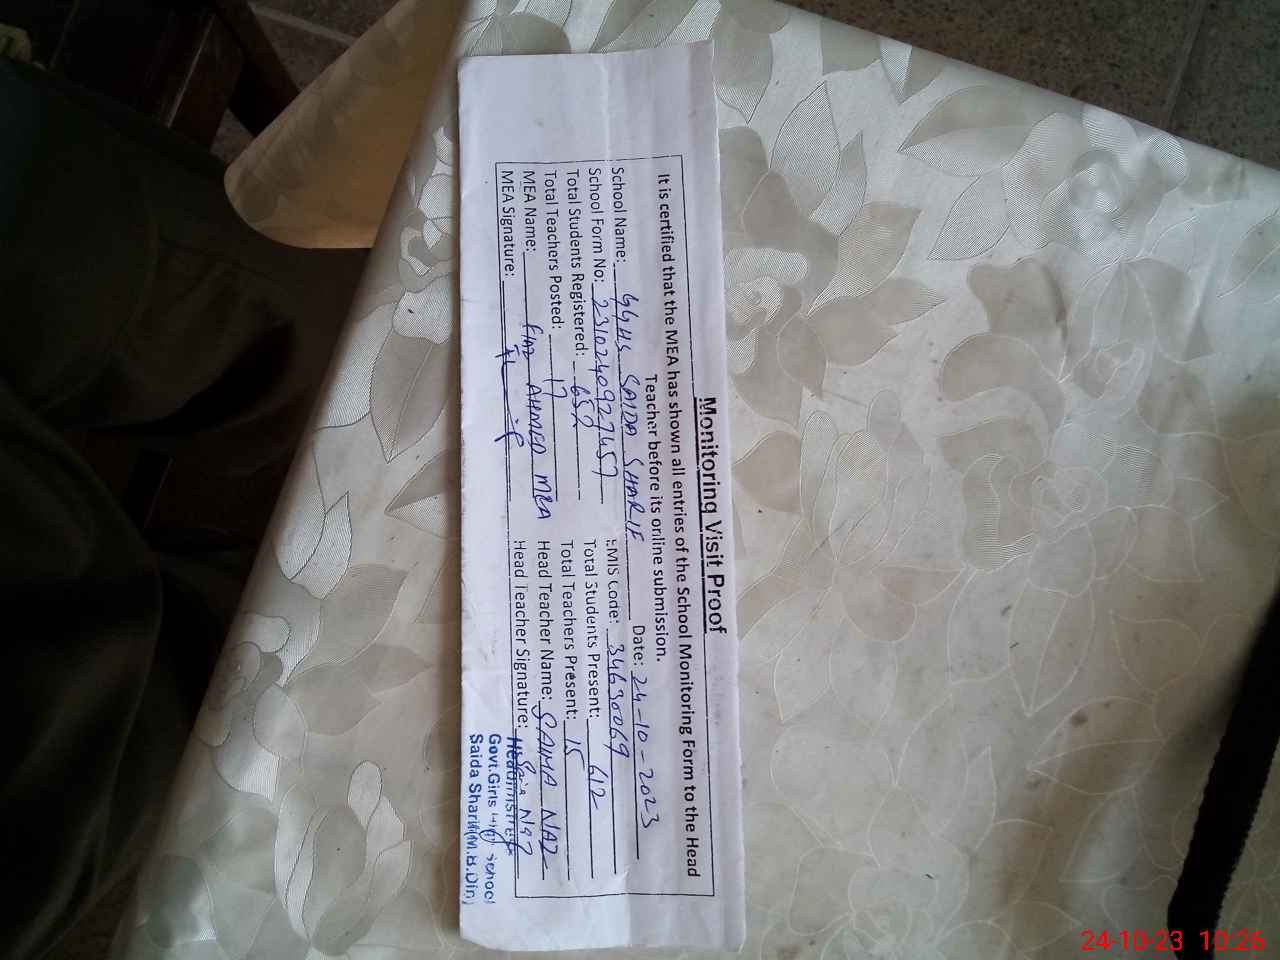 Monitoring Visit Proof
It is certified that the MEA has shown all entries of the School Monitoring Form to the Head
Teacher before its online submission.
School Name: GGHS SAIDA SHARIF Date: 24-10-2023
School Form No: 231024092457 EMIS Code: 34630069
Total Students Registered: 652 Total Students Present: 612
Total Teachers Posted: 17 Total Teachers Present: 15
MEA Name: FIAZ AHMED MEA Head Teacher Name: SAIMA NAZ
MEA Signature: Head Teacher Signature: Saima Naz
Headmistress
Govt.Girls High School
Saida Sharif(M.B.Din)
24-10-23 10:26